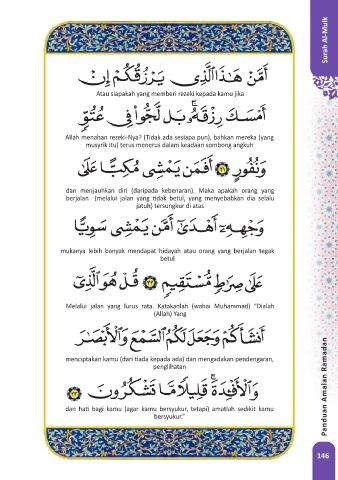 Surah Al-Mulk
أَمَّنْ هَـٰذَا ٱلَّذِى يَرْزُقُكُمْ إِنْ
Atau siapakah yang memberi rezeki kepada kamu jika
أَمْسَكَ رِزْقَهُۥ ۚ بَل لَّجُّوا۟ فِى عُتُوٍّ
Allah menahan rezeki-Nya? (Tidak ada sesiapa pun), bahkan mereka (yang
musyrik itu) terus menerus dalam keadaan sombong angkuh
وَنُفُورٍ ٢١ أَفَمَن يَمْشِى مُكِبًّا عَلَىٰ
dan menjauhkan diri (daripada kebenaran). Maka apakah orang yang
berjalan (melalui jalan yang tidak betul, yang menyebabkan dia selalu
jatuh) tersungkur di atas
وَجْهِهِۦٓ أَهْدَىٰٓ أَمَّن يَمْشِى سَوِيًّا
mukanya lebih banyak mendapat hidayah atau orang yang berjalan tegak
betul
عَلَىٰ صِرَٰطٍ مُّسْتَقِيمٍ ٢٢ قُلْ هُوَ ٱلَّذِىٓ
Melalui jalan yang lurus rata. Katakanlah (wahai Muhammad) "Dialah
(Allah) Yang
أَنشَأَكُمْ وَجَعَلَ لَكُمُ ٱلسَّمْعَ وَٱلْأَبْصَـٰرَ
menciptakan kamu (dari tiada kepada ada) dan mengadakan pendengaran,
penglihatan
وَٱلْأَفْـِٔدَةَ ۖ قَلِيلًا مَّا تَشْكُرُونَ ٢٣
dan hati bagi kamu (agar kamu bersyukur, tetapi) amatlah sedikit kamu
bersyukur."
Panduan Amalan Ramadan
146